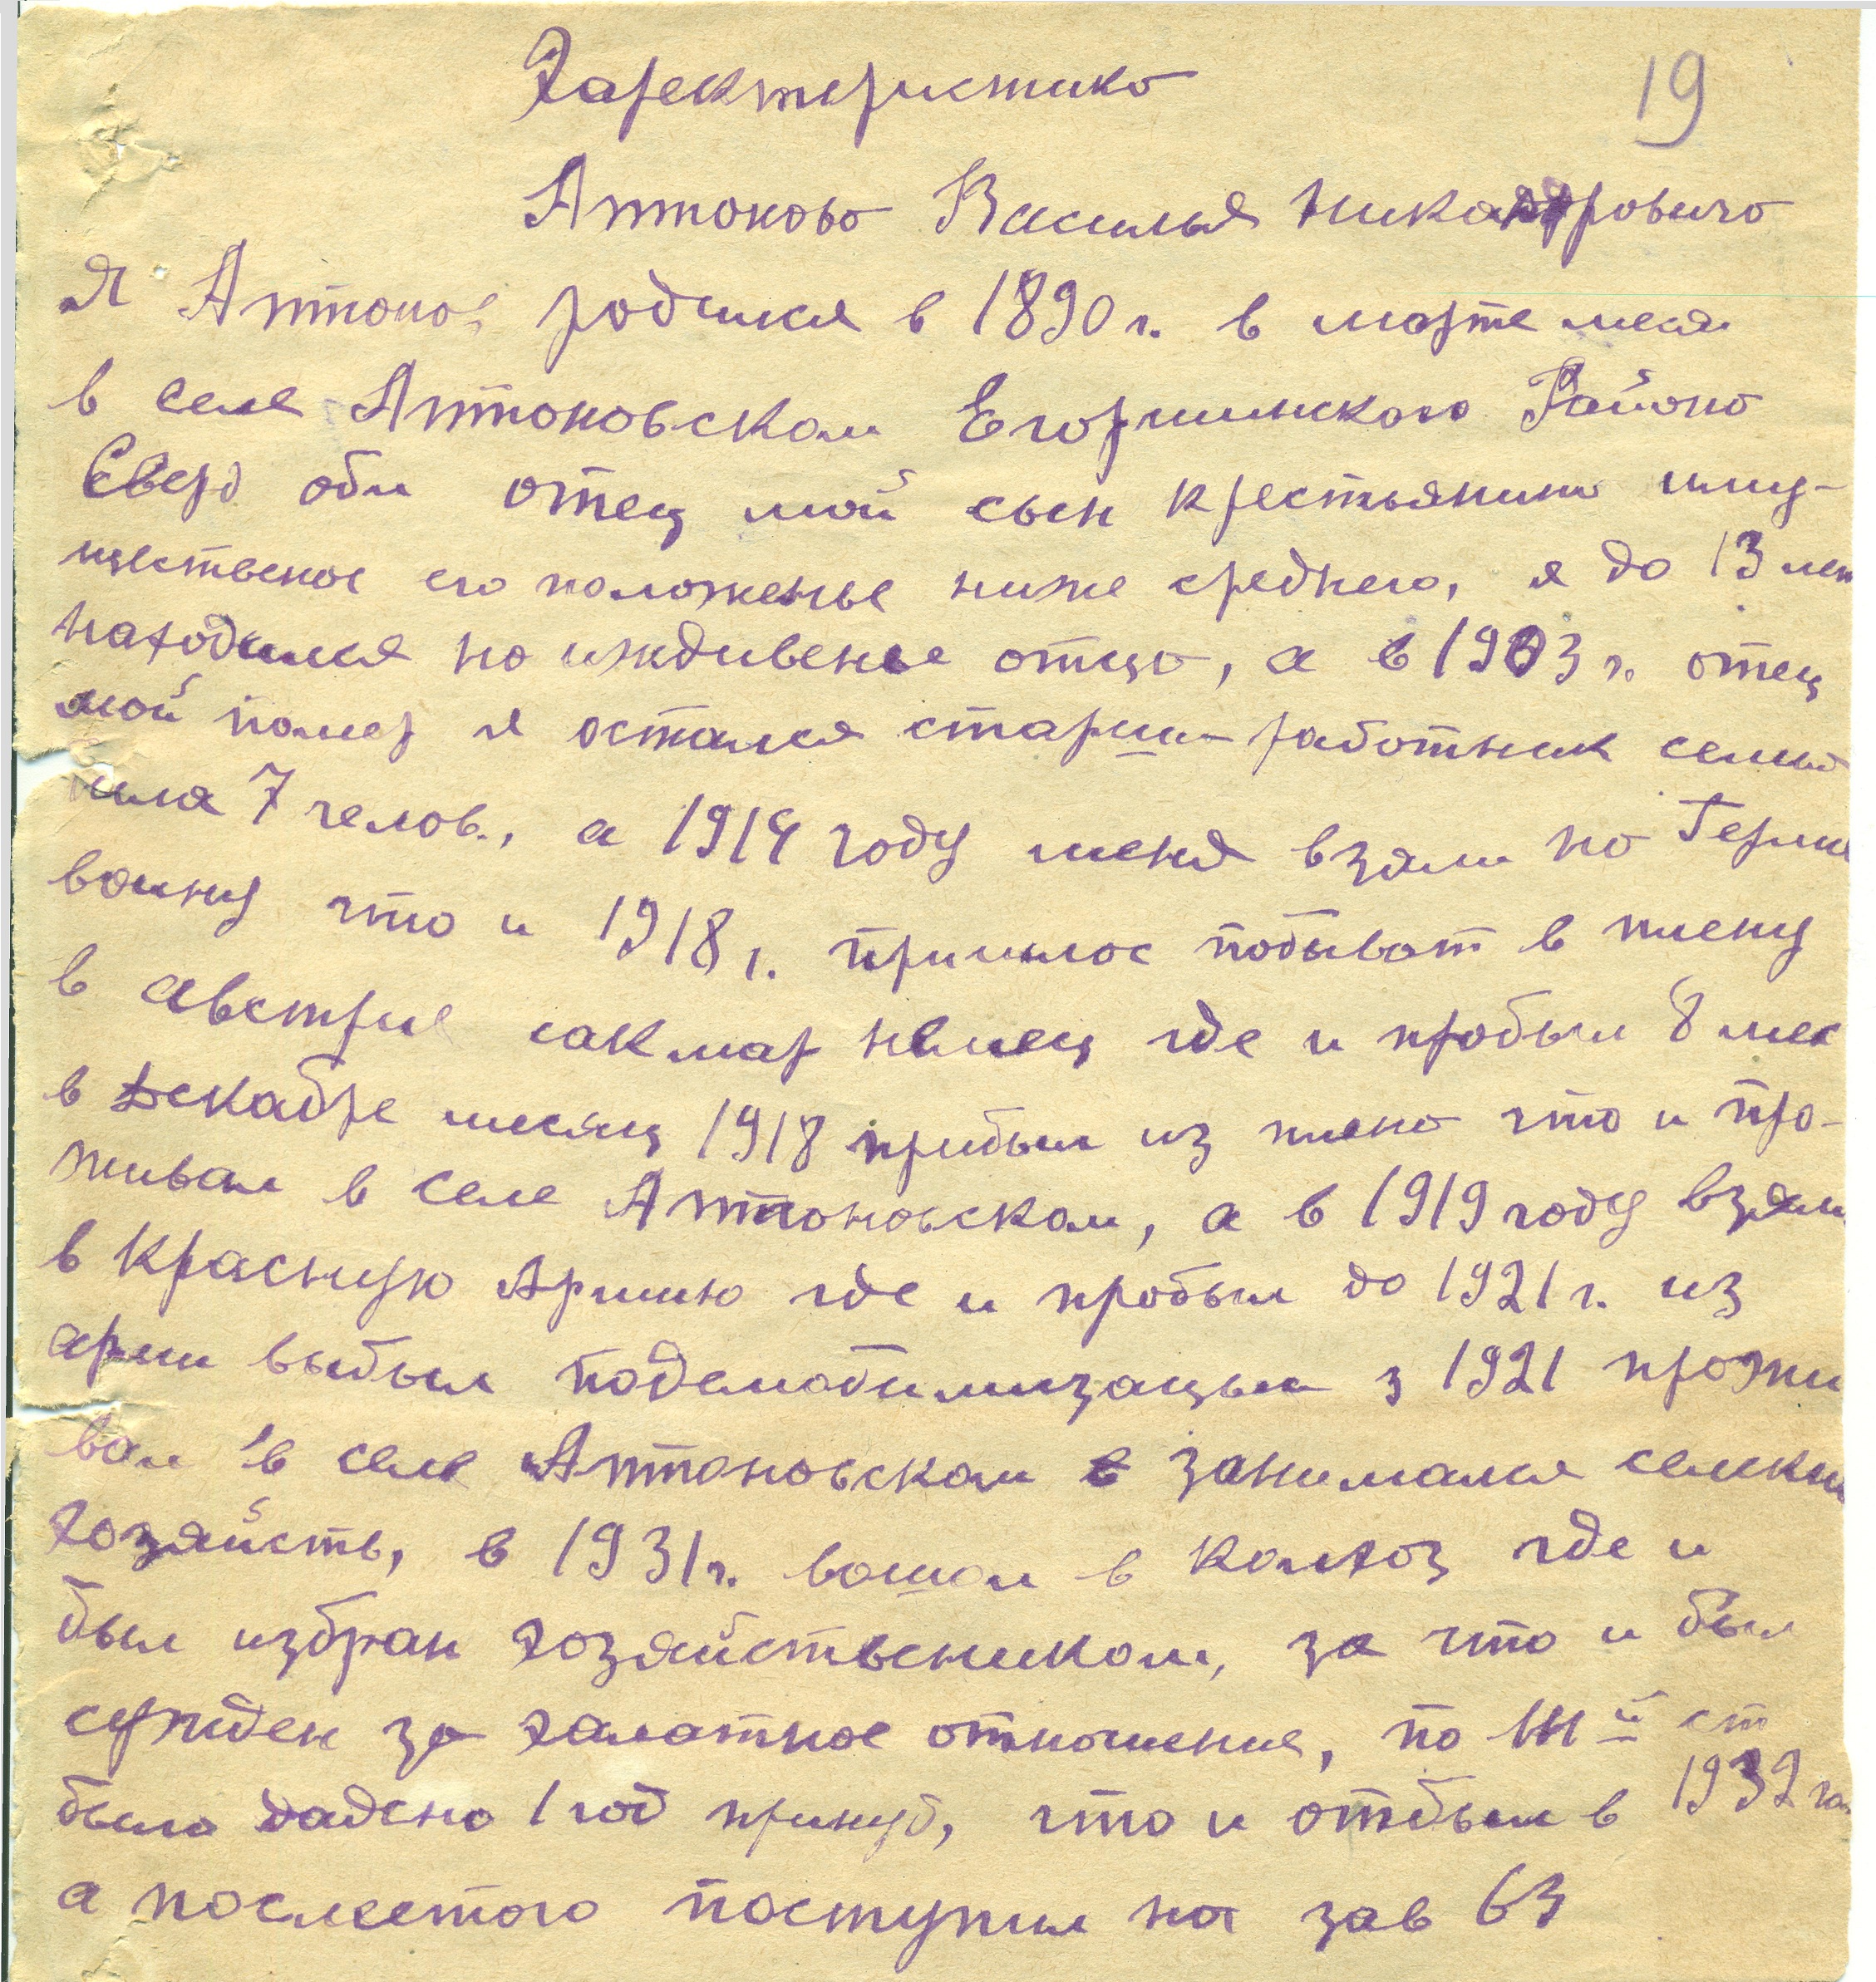 Характеристика
19
Антонова Василья Никандровича
Я Антонов родился в 1890 г. в марте меся
в селе Антоновском Егоршинского Района
Сверд обл отец мой сын крестьянина иму-
щественое его положенье ниже среднего, я до 13 лет
находился на иждивенье отца, а в 1903 г. отец
мой помер я остался старши работник семья
была 7 челов., а 1914 году меня взяли на Герма
воину что и 1918 г. пришлос побыват в плену
в австрие немец где и пробыл 8 мес
в декабре месяц 1918 прибыл из плена что и про-
живал в селе Антоновском, а в 1919 году взяли
в Красную Армию где и пробыл до 1921 г. из
арми выбыл подемобилизацыи з 1921 прожи
вал в селе Антоновском в занимался селски
хозяйств, в 1931 г. вошол в колхоз где и
был избран хозяйствеником, за что и был
сужден за халатное отношение, по 111 й ст
было дадено 1 год принуд, что и отбыл в 1932 го
а послеетого поступил на зав 63